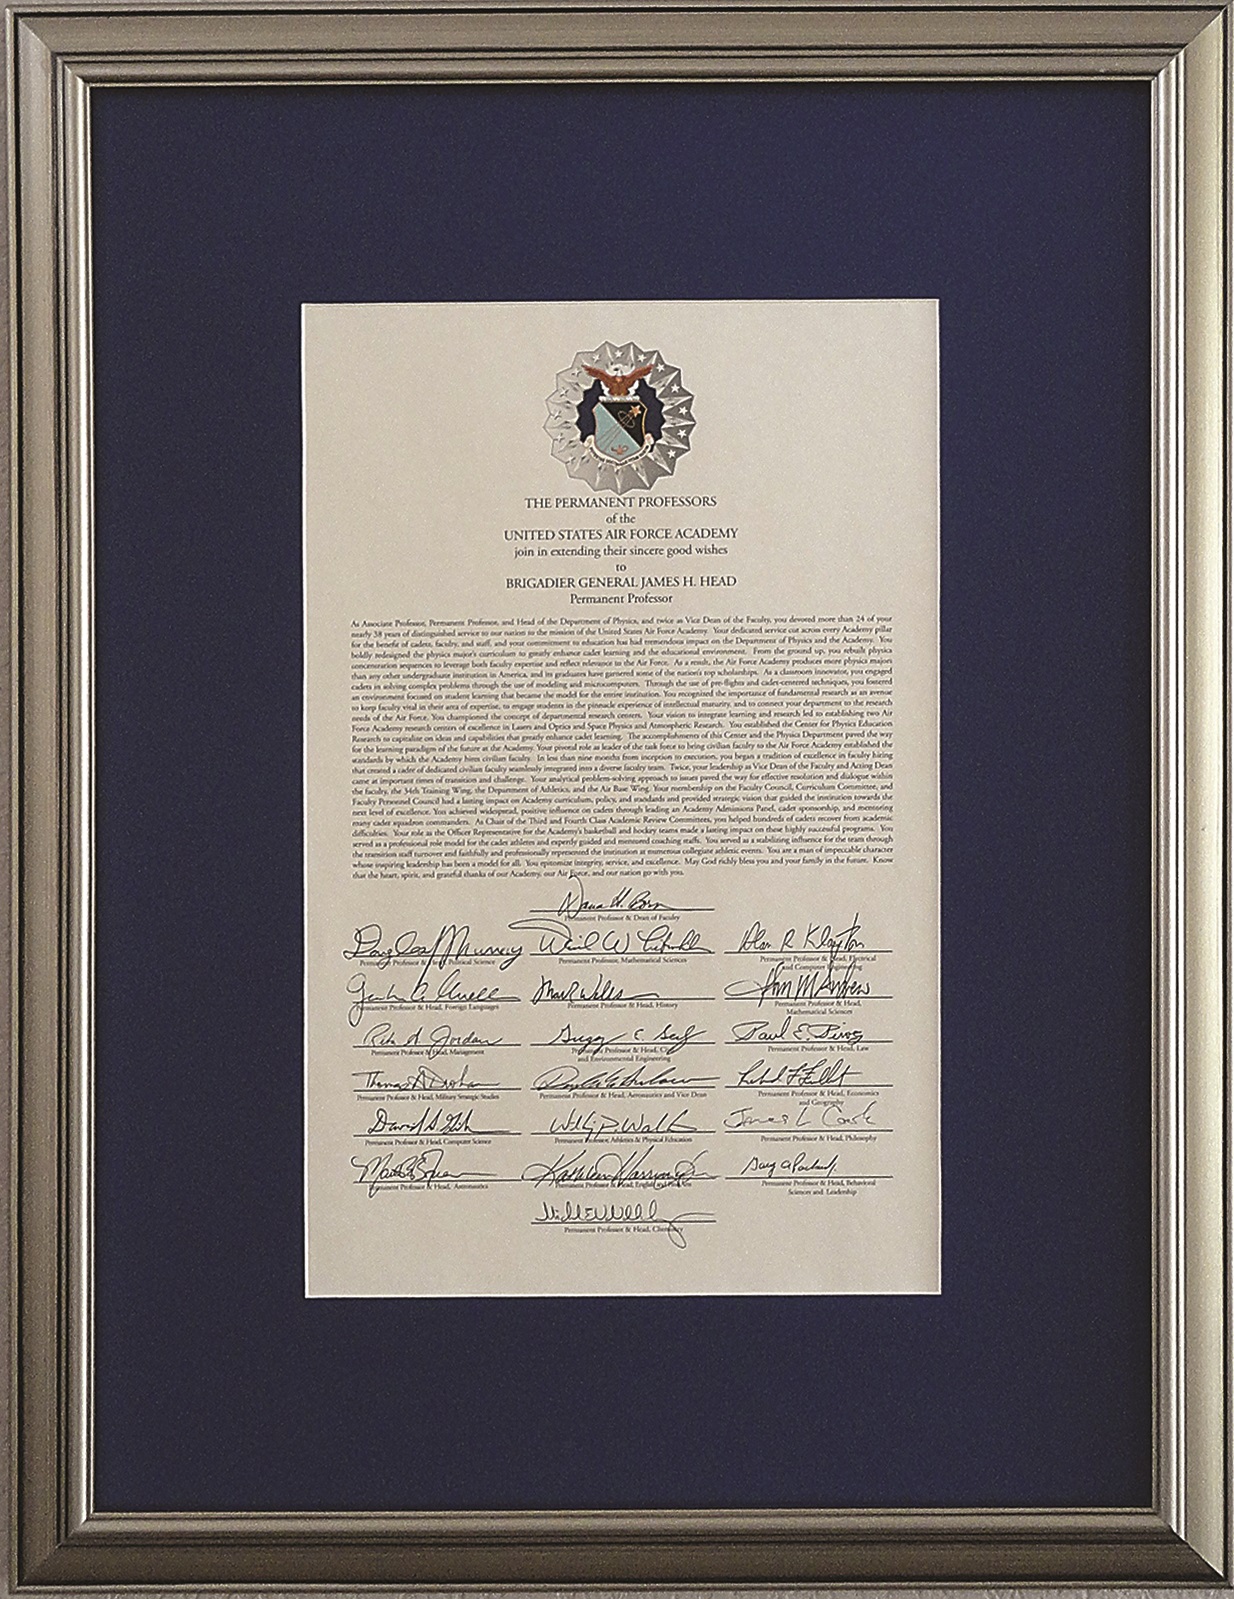 THE PERMANENT PROFESSORS
of the
UNITED STATES AIR FORCE ACADEMY
join in extending their sincere good wishes
to
BRIGADIER GENERAL JAMES H. HEAD
Permanent Professor
As Associate Professor, Permanent Professor, and Head of the Department of Physics, and twice as Vice Dean of the Faculty, you devoted more than 24 of your
nearly 38 years of distinguished service to our nation to the mission of the United States Air Force Academy. Your dedicated service cut across every Academy pillar
for the benefit of cadets, faculty, and staff, and your commitment to education has had tremendous impact on the Department of Physics and the Academy. You
boldly redesigned the physics major's curriculum to greatly enhance cadet learning and the educational environment. From the ground up, you rebuilt physics
concentration sequences to leverage both faculty expertise and reflect relevance to the Air Force. As a result, the Air Force Academy produces more physics majors
than any other undergraduate institution in America, and its graduates have garnered some of the nation's top scholarships. As a classroom innovator, you engaged
cadets in solving complex problems through the use of modeling and microcomputers. Through the use of pre-flights and cadet-centered techniques, you fostered
an environment focused on student learning that became the model for the entire institution. You recognized the importance of fundamental research as an avenue
to keep faculty vital in their area of expertise, to engage students in the pinnacle experience of intellectual maturity, and to connect your department to the research
needs of the Air Force. You championed the concept of departmental research centers. Your vision to integrate learning and research led to establishing two Air
Force Academy research centers of excellence in Lasers and Optics and Space Physics and Atmospheric Research. You established the Center for Physics Education
Research to capitalize on ideas and capabilities that greatly enhance cadet learning. The accomplishments of this Center and the Physics Department paved the way
for the learning paradigm of the future at the Academy. Your pivotal role as leader of the task force to bring civilian faculty to the Air Force Academy established the
standards by which the Academy hires civilian faculty. In less than nine months from inception to execution, you began a tradition of excellence in faculty hiring
that created a cadre of dedicated civilian faculty seamlessly integrated into a diverse faculty team. Twice, your leadership as Vice Dean of the Faculty and Acting Dean
came at important times of transition and challenge. Your analytical problem-solving approach to issues paved the way for effective resolution and dialogue within
the faculty, the 34th Training Wing, the Department of Athletics, and the Air Base Wing. Your membership on the Faculty Council, Curriculum Committee, and
Faculty Personnel Council had a lasting impact on Academy curriculum, policy, and standards and provided strategic vision that guided the institution towards the
next level of excellence. You achieved widespread, positive influence on cadets through leading an Academy Admissions Panel, cadet sponsorship, and mentoring
many cadet squadron commanders. As Chair of the Third and Fourth Class Academic Review Committees, you helped hundreds of cadets recover from academic
difficulties. Your role as the Officer Representative for the Academy's basketball and hockey teams made a lasting impact on these highly successful programs. You
served as a professional role model for the cadet athletes and expertly guided and mentored coaching staffs. You served as a stabilizing influence for the team through
the transition staff turnover and faithfully and professionally represented the institution at numerous collegiate athletic events. You are a man of impeccable character
whose inspiring leadership has been a model for all. You epitomize integrity, service, and excellence. May God richly bless you and your family in the future. Know
that the heart, spirit, and grateful thanks of our Academy, our Air Force, and our nation go with you.
Dana H. Born
Permanent Professor & Dean of Faculty
Douglas J Murray
Permanent Professor & Head, Political Science
Permanent Professor, Mathematical Sciences
Alan R Klayton
Permanent Professor & Head, Electrical
and Computer Engineering
Permanent Professor & Head, Foreign Languages
Mark Wells
Permanent Professor & Head, History
John M Andrew
Permanent Professor & Head,
Mathematical Sciences
Rita A. Jordan
Permanent Professor & Head, Management
Permanent Professor & Head, Civil
and Environmental Engineering
Paul E. Pirog
Permanent Professor & Head, Law
Thomas A Drohan
Permanent Professor & Head, Military Strategic Studies
Permanent Professor & Head, Aeronautics and Vice Dean
Permanent Professor & Head, Economics
and Geography
David S. Gibson
Permanent Professor & Head, Computer Science
Permanent Professor, Athletics & Physical Education
James L Cook
Permanent Professor & Head, Philosophy
Permanent Professor & Head, Astronautics
Kathleen Harrington
Permanent Professor & Head, English and Fine Arts
Gary A Packard, Jr.
Permanent Professor & Head, Behavioral
Sciences and Leadership
Permanent Professor & Head, Chemistry